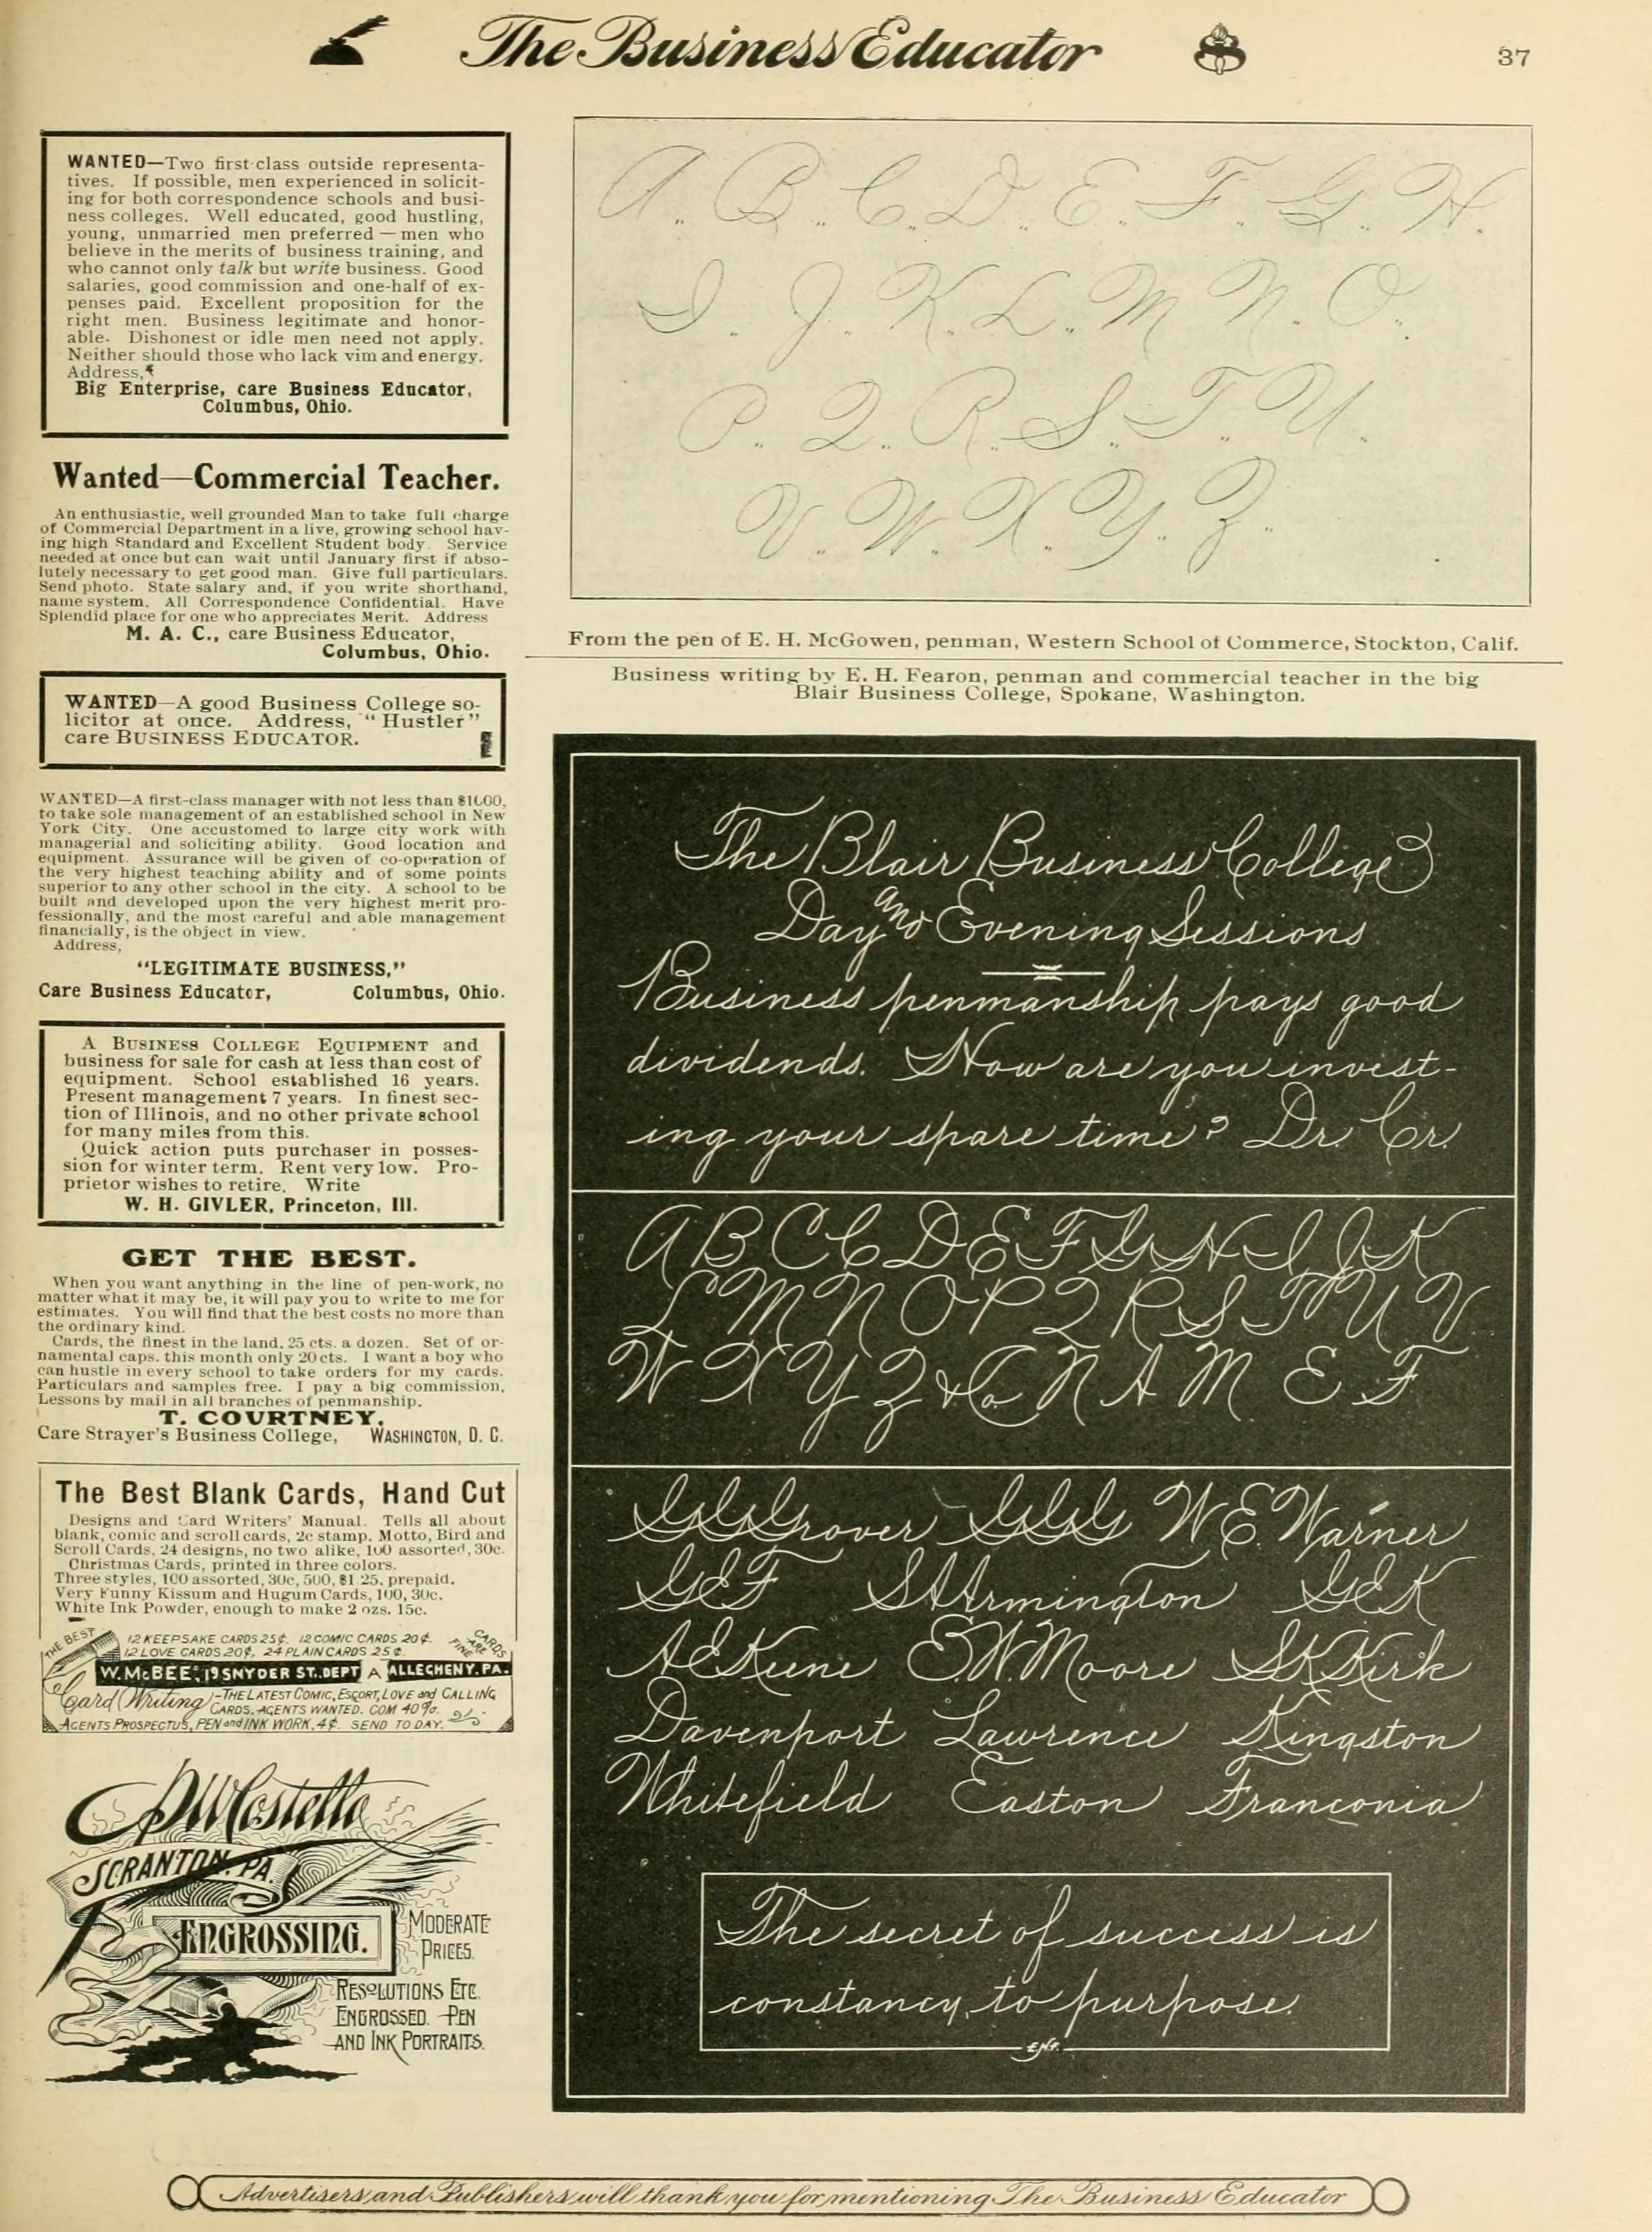 The Business Educator
37
WANTED—Two first-class outside representa-
tives. If possible, men experienced in solicit-
ing for both correspondence schools and busi-
ness colleges. Well educated, good hustling,
young, unmarried men preferred — men who
believe in the merits of business training, and
who cannot only talk but write business. Good
salaries, good commission and one-half of ex-
penses paid. Excellent proposition for the
right men. Business legitimate and honor-
able. Dishonest or idle men need not apply.
Neither should those who lack vim and energy.
Address,
Big Enterprise, care Business Educator,
Columbus, Ohio.
Wanted—Commercial Teacher.
An enthusiastic, well grounded Man to take full charge
of Commercial Department in a live, growing school hav-
ing high Standard and Excellent Student body. Service
needed at once but can wait until January first if abso-
lutely necessary to get good man. Give full particulars.
Send photo. State salary and, if you write shorthand,
name system. All Correspondence Confidential. Have
Splendid place for one who appreciates Merit. Address
M. A. C., care Business Educator,
Columbus, Ohio.
WANTED—A good Business College so-
licitor at once. Address, "Hustler"
care BUSINESS EDUCATOR.
WANTED—A first-class manager with not less than $1000,
to take sole management of an established school in New
York City. One accustomed to large city work with
managerial and soliciting ability. Good location and
equipment. Assurance will be given of co-operation of
the very highest teaching ability and of some points
superior to any other school in the city. A school to be
built and developed upon the very highest merit pro-
fessionally, and the most careful and able management
financially, is the object in view.
Address,
"LEGITIMATE BUSINESS,"
Care Business Educator, Columbus, Ohio.
A BUSINESS COLLEGE EQUIPMENT and
business for sale for cash at less than cost of
equipment. School established 16 years.
Present management 7 years. In finest sec-
tion of Illinois, and no other private school
for many miles from this.
Quick action puts purchaser in posses-
sion for winter term. Rent very low. Pro-
prietor wishes to retire. Write
W. H. GIVLER, Princeton, Ill.
GET THE BEST.
When you want anything in the line of pen-work, no
matter what it may be, it will pay you to write to me for
estimates. You will find that the best costs no more than
the ordinary kind.
Cards, the finest in the land, 25 cts. a dozen. Set of or-
namental caps. this month only 20 cts. I want a boy who
can hustle in every school to take orders for my cards.
Particulars and samples free. I pay a big commission.
Lessons by mail in all branches of penmanship.
T. COURTNEY,
Care Strayer's Business College, WASHINGTON, D. C.
The Best Blank Cards, Hand Cut
Designs and Card Writers' Manual. Tells all about
blank, comic and scroll cards, 2c stamp. Motto, Bird and
Scroll Cards, 24 designs, no two alike, 100 assorted, 30c.
Christmas Cards, printed in three colors.
Three styles, 100 assorted, 30c, 500, $1.25, prepaid.
Very Funny Kissum and Hugum Cards, 100, 30c.
White Ink Powder, enough to make 2 ozs. 15c.
THE BEST 12 KEEPSAKE CARDS 25¢. 12 COMIC CARDS 20¢. CARDS
12 LOVE CARDS 20¢. 24 PLAIN CARDS 25¢. ARE FINE
W. McBEE, 19 SNYDER ST., DEPT A ALLEGHENY. PA.
Card Writing—THE LATEST COMIC, ESCORT, LOVE and CALLING
CARDS. AGENTS WANTED. COM 40%.
AGENTS PROSPECTUS, PEN and INK WORK, 4¢. SEND TO DAY.
PW Costello
SCRANTON. PA.
ENGROSSING.
MODERATE
PRICES.
RESOLUTIONS ETC.
ENGROSSED. PEN
AND INK PORTRAITS.
A. B. C. D. E. F. G. H.
I. J. K. L. M. N. O.
P. Q. R. S. T. U.
V. W. X. Y. Z.
From the pen of E. H. McGowen, penman, Western School of Commerce, Stockton, Calif.
Business writing by E. H. Fearon, penman and commercial teacher in the big
Blair Business College, Spokane, Washington.
The Blair Business College
Day and Evening Sessions
Business penmanship pays good
dividends. How are you invest-
ing your spare time? Dr. Cr.
A B C C D E F G H I J K
L M N O P Q R S T U V
W X Y Z & Co N A M E F
GGGrover GGG W.E. Warner
GEF SAArmington GEK
AEKeene E.W. Moore SKKirk
Davenport Lawrence Kingston
Whitefield Easton Franconia
The secret of success is
constancy to purpose.
E.H.F.
Advertisers and Publishers will thank you for mentioning The Business Educator